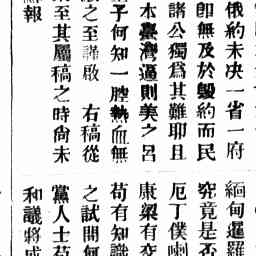 俄約未決一省一府
卽無及於毀約而民
諸公獨爲其難耶且
本臺灣逼則美之呂
子何知一腔熱血無
之至謹啟 右稿從
至其屬稿之時尙未
報
緬甸暹羅
究竟是否
厄丁僕喇
康梁有
苟有知識
之試問何
黨人士苟
和議將成